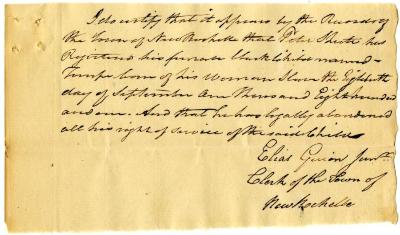 I do certify that it appears by the Records of
the Town of New Rochelle that Peter has
Registered his female black Child named
born of his Woman Slave the Eighth
day of September One Thousand Eight hundred
and one. And that he has legally abandoned
all his right of service of the said Child
Elias Guion Junr.
Clerk of the Town of
New Rochelle